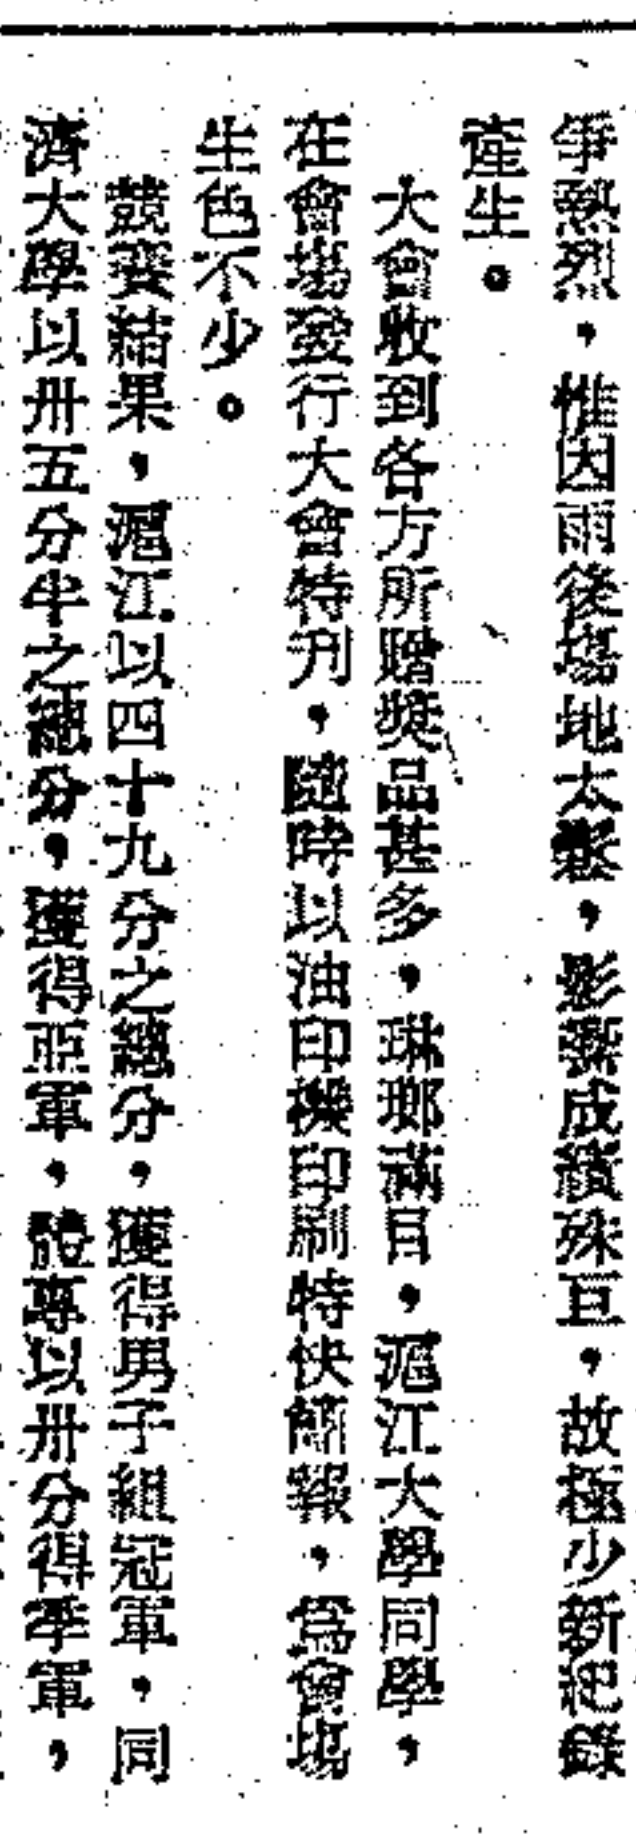 爭熱烈，惟因雨後塲地太鬆，影響成績殊巨，故極少新紀錄
產生。
大會收到各方所贈獎品甚多，琳瑯滿目，滬江大學同學，
在會塲發行大會特刋，隨時以油印機印刷特快簡報，爲會塲
生色不少。
競賽結果，滬江以四十九分之總分，獲得男子組冠軍，同
濟大學以卅五分半之總分，獲得亞軍，體專以卅分得季軍，